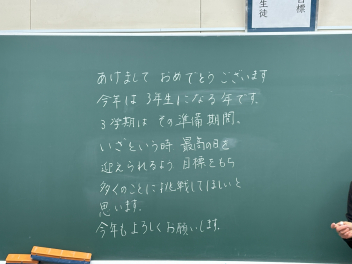 目標
生徒
あけまして おめでとう ございます
今年は 3年生になる年です。
3学期は その準備期間。
いざという時 最高の日を
迎えられるよう 目標をもち
多くのことに挑戦してほしいと
思います。
今年もよろしくお願いします。